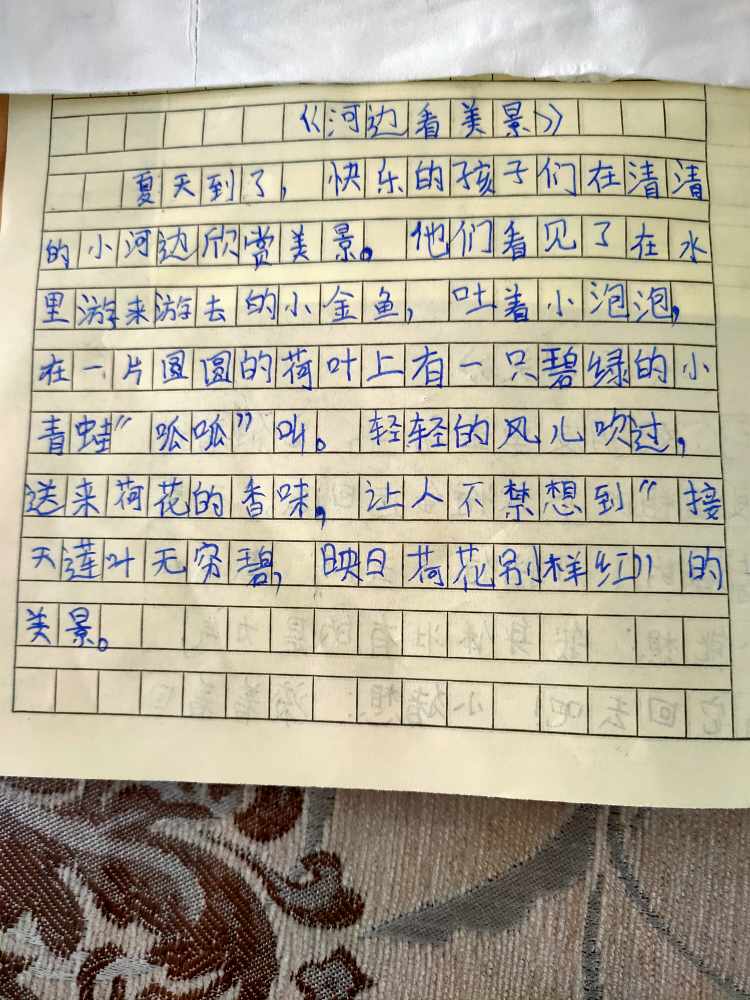 《河边看美景》
夏天到了，快乐的孩子们在清清
的小河边欣赏美景。他们看见了在水
里游来游去的小金鱼，吐着小泡泡，
在一片圆圆的荷叶上有一只碧绿的小
青蛙“呱呱”叫。轻轻的风儿吹过，
送来荷花的香味，让人不禁想到“接
天莲叶无穷碧，映日荷花别样红”的
美景。